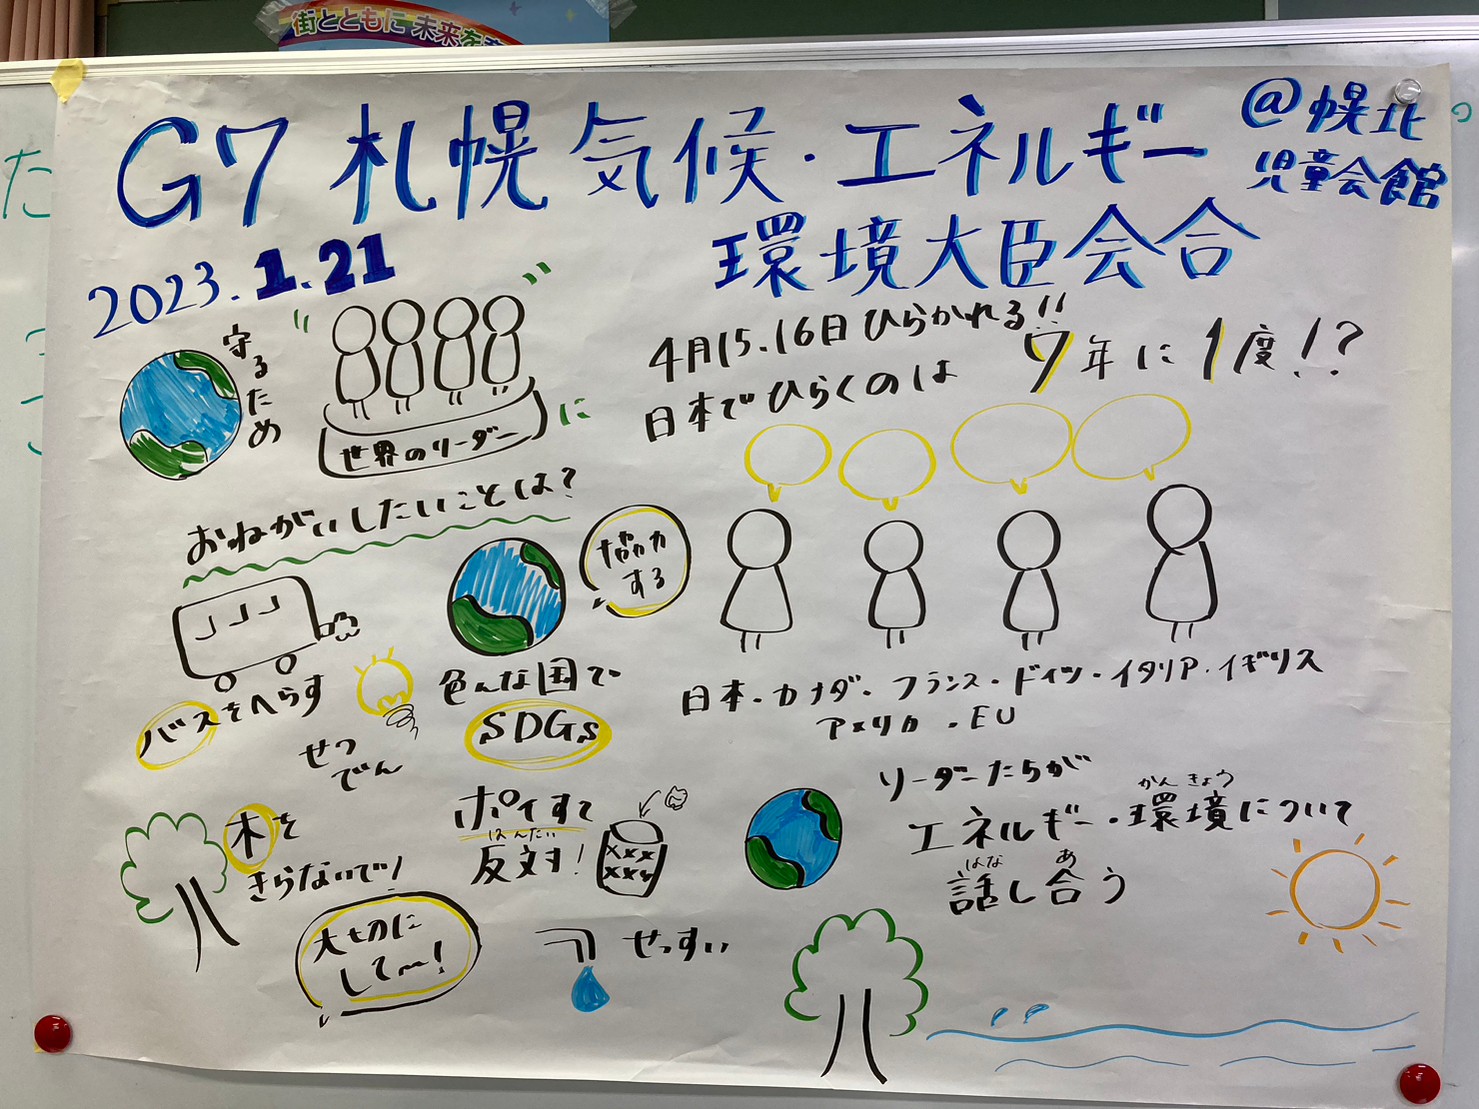 街とともに 未来を
G7 札幌 気候・エネルギー
環境大臣会合
@幌北
児童会館
2023.1.21
守るため
世界のリーダー
に
おねがいしたいことは?
4月15.16日ひらかれる!!
日本でひらくのは
7年に1度!?
協力
する
バスをへらす
せつ
でん
色んな国で
SDGs
日本・カナダ・フランス・ドイツ・イタリア・イギリス
アメリカ・EU
木を
きらないで!
大切に
して〜!
ポイすて
はんたい
反対!
せっすい
リーダーたちが
かんきょう
エネルギー・環境について
はな あ
話し合う